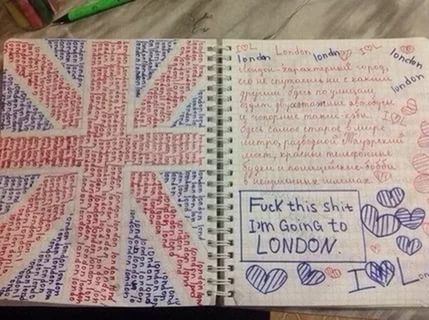 london london london london
I ♡ L London london I ♡ L
london
london
Лондон - характерный город,
его не спутаешь ни с каким
другим. Здесь по улицам
ездят двухэтажные автобусы
и чопорные такие кэбы.
Здесь самое старое в мире
метро, разводной Тауэрский
мост, красные телефонные
будки и полицейские-бобби
в неизменных шлемах.
I ♡ L
Fuck this shit
I'm Going to
LONDON.
I ♡ London